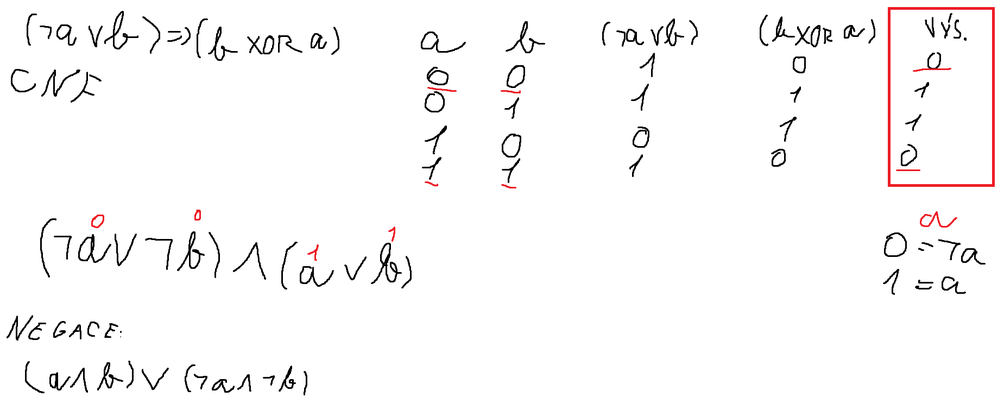 (¬a∨b)=>(b XOR a) a b (¬a∨b) (b XOR a) VÝS.
CNF 0 0 1 0 0
0 1 1 1 1
1 0 0 1 1
1 1 1 0 0
0 0 1 1 a
(¬a∨¬b)∧(a∨b) 0=¬a
1=a
NEGACE:
(a∧b)∨(¬a∧¬b)